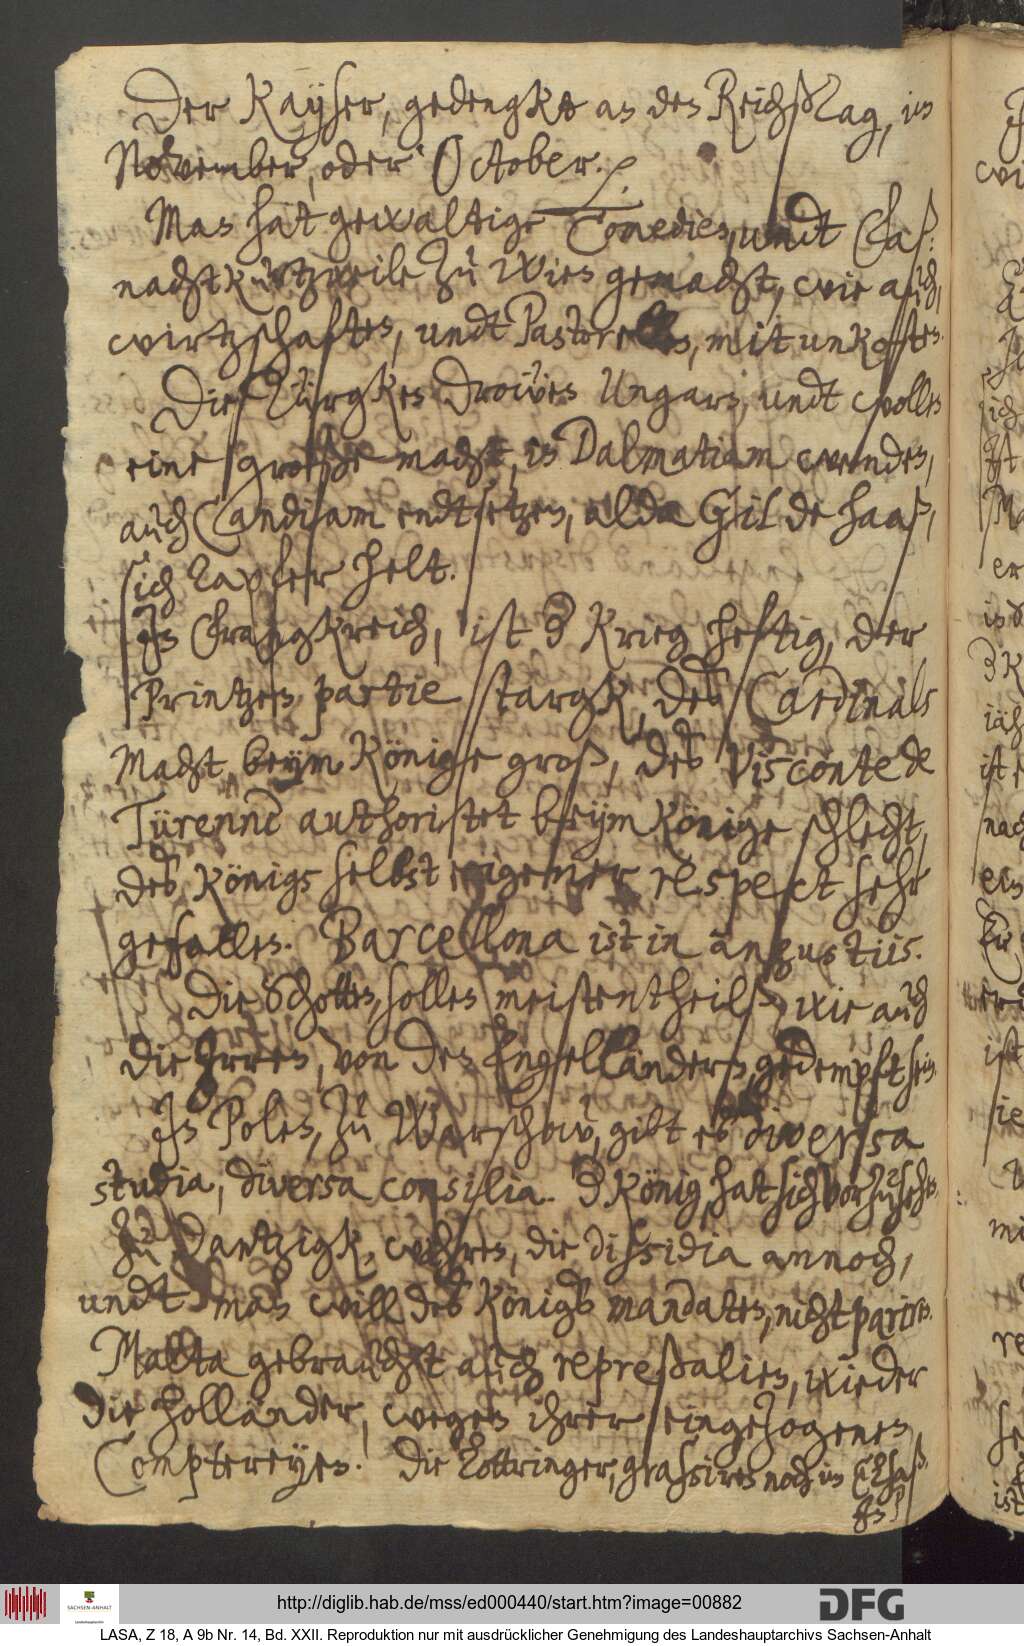 Der Kayser, gedengkt an den Reichßtag, im
November, oder October. 
Man hat gewaltige Comedien, undt Faß¬
nachtkurtzweile zu Wien gemacht, wie auch,
wirtzschaften, undt Pastorellen, mit unkosten.
Die Türgken drowen Ungarn, undt wollen
eine große macht, in Dalmatiam wenden,
auch Candiam endtsetzen, alda Gil de Haaß,
sich tapfer helt.
In Frangkreich, ist der Krieg heftig, der
Printzen partie stargk, des Cardinals
Macht beym Könige groß, des Visconte de
Türenne authoritet beym Könige schlecht,
des Königs selbst eigener respect sehr
gefallen. Barcellona ist in angustiis.
Die Schotten, sollen meistentheilß, wie auch
die Irren, von den Engelländern, gedempft sein.
In Polen, zu Warschow, gibt es diversa
studia, diversa consilia. Der König, hat sich vorzusehen.
Zu Dantzigk, wehren, die dissidia annoch,
undt man will des Königs mandaten, nicht pariren.
Malta gebraucht auch repreßalien, wieder
die Holländer, wegen ihrer eingezogenen
Comptereyen. Die Lottringer, grassiren noch im Elsaß.
In
http://diglib.hab.de/mss/ed000440/start.htm?image=00882
SACHSEN-ANHALT
Landeshauptarchiv
DFG
LASA, Z 18, A 9b Nr. 14, Bd. XXII. Reproduktion nur mit ausdrücklicher Genehmigung des Landeshauptarchivs Sachsen-Anhalt